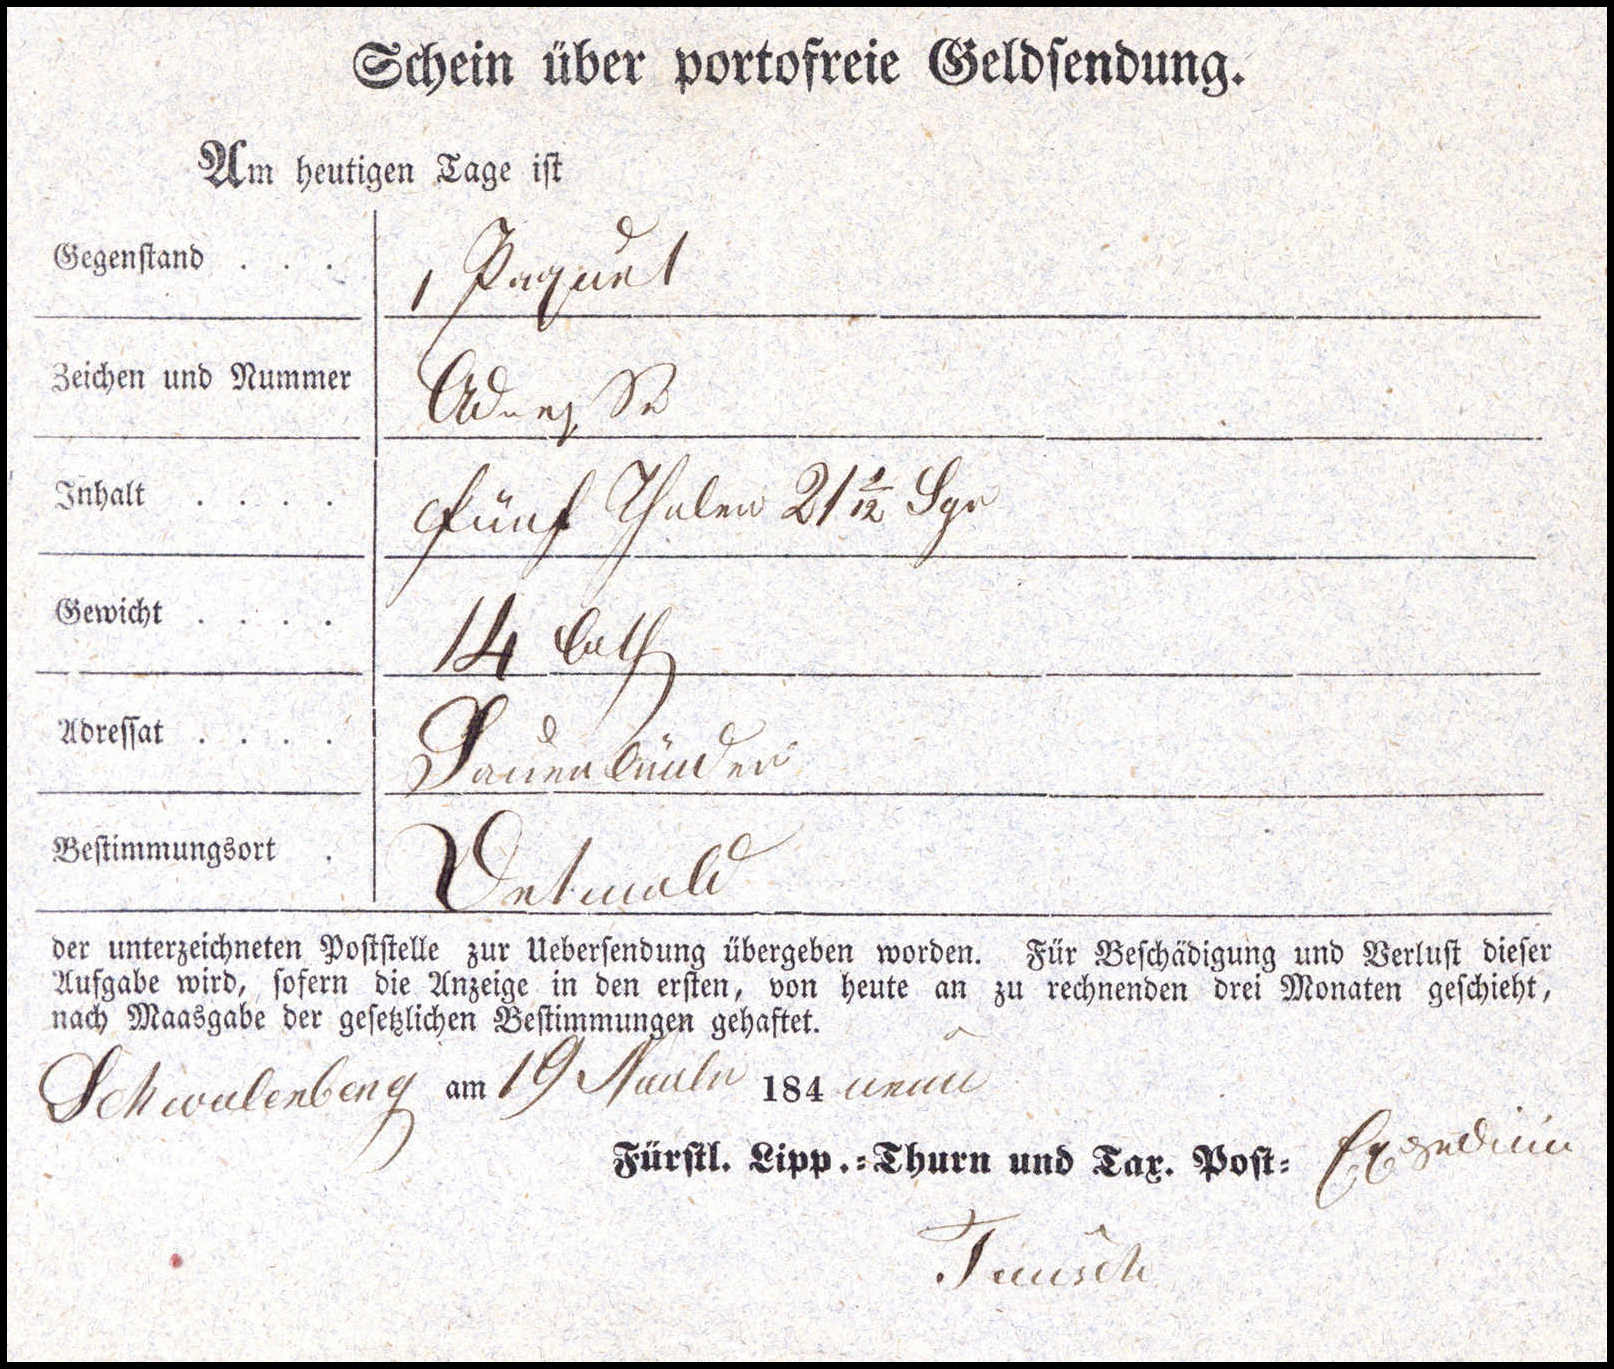 Schein über portofreie Geldsendung.
Am heutigen Tage ist
Gegenstand . . . 1 Paquet
Zeichen und Nummer Adresse
Inhalt . . . . fünf Thaler 21 1/12 Sgr
Gewicht . . . . 14 Loth
Adressat . . . . Sauerländer
Bestimmungsort . Detmold
der unterzeichneten Poststelle zur Uebersendung übergeben worden. Für Beschädigung und Verlust dieser
Aufgabe wird, sofern die Anzeige in den ersten, von heute an zu rechnenden drei Monaten geschieht,
nach Maasgabe der gesetzlichen Bestimmungen gehaftet.
Schwalenberg am 19 184 neun
Fürstl. Lipp.-Thurn und Tax. Post- Expedition